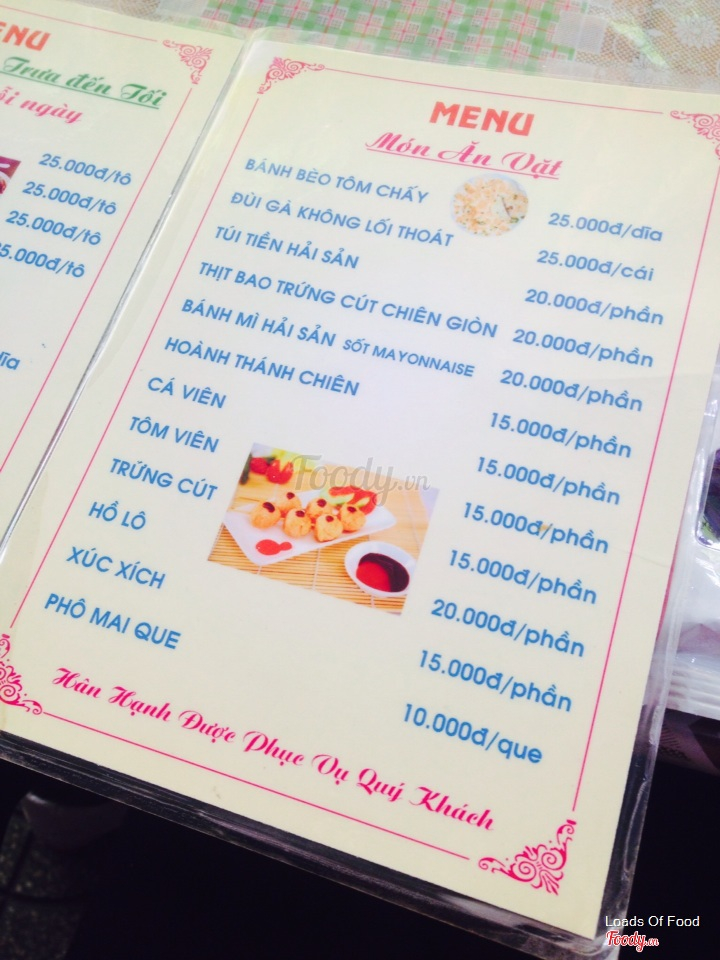 ENU
Trưa đến Tối
ỗi ngày
25.000đ/tô
25.000đ/tô
25.000đ/tô
25.000đ/tô
dĩa
MENU
Món Ăn Vặt
BÁNH BÈO TÔM CHẤY 25.000đ/dĩa
ĐÙI GÀ KHÔNG LỐI THOÁT 25.000đ/cái
TÚI TIỀN HẢI SẢN 20.000đ/phần
THỊT BAO TRỨNG CÚT CHIÊN GIÒN 20.000đ/phần
BÁNH MÌ HẢI SẢN SỐT MAYONNAISE 20.000đ/phần
HOÀNH THÁNH CHIÊN 15.000đ/phần
CÁ VIÊN 15.000đ/phần
TÔM VIÊN 15.000đ/phần
TRỨNG CÚT 15.000đ/phần
HỒ LÔ 20.000đ/phần
XÚC XÍCH 15.000đ/phần
PHÔ MAI QUE 10.000đ/que
Hân Hạnh Được Phục Vụ Quý Khách
Foody.vn
Loads Of Food
Foody.vn